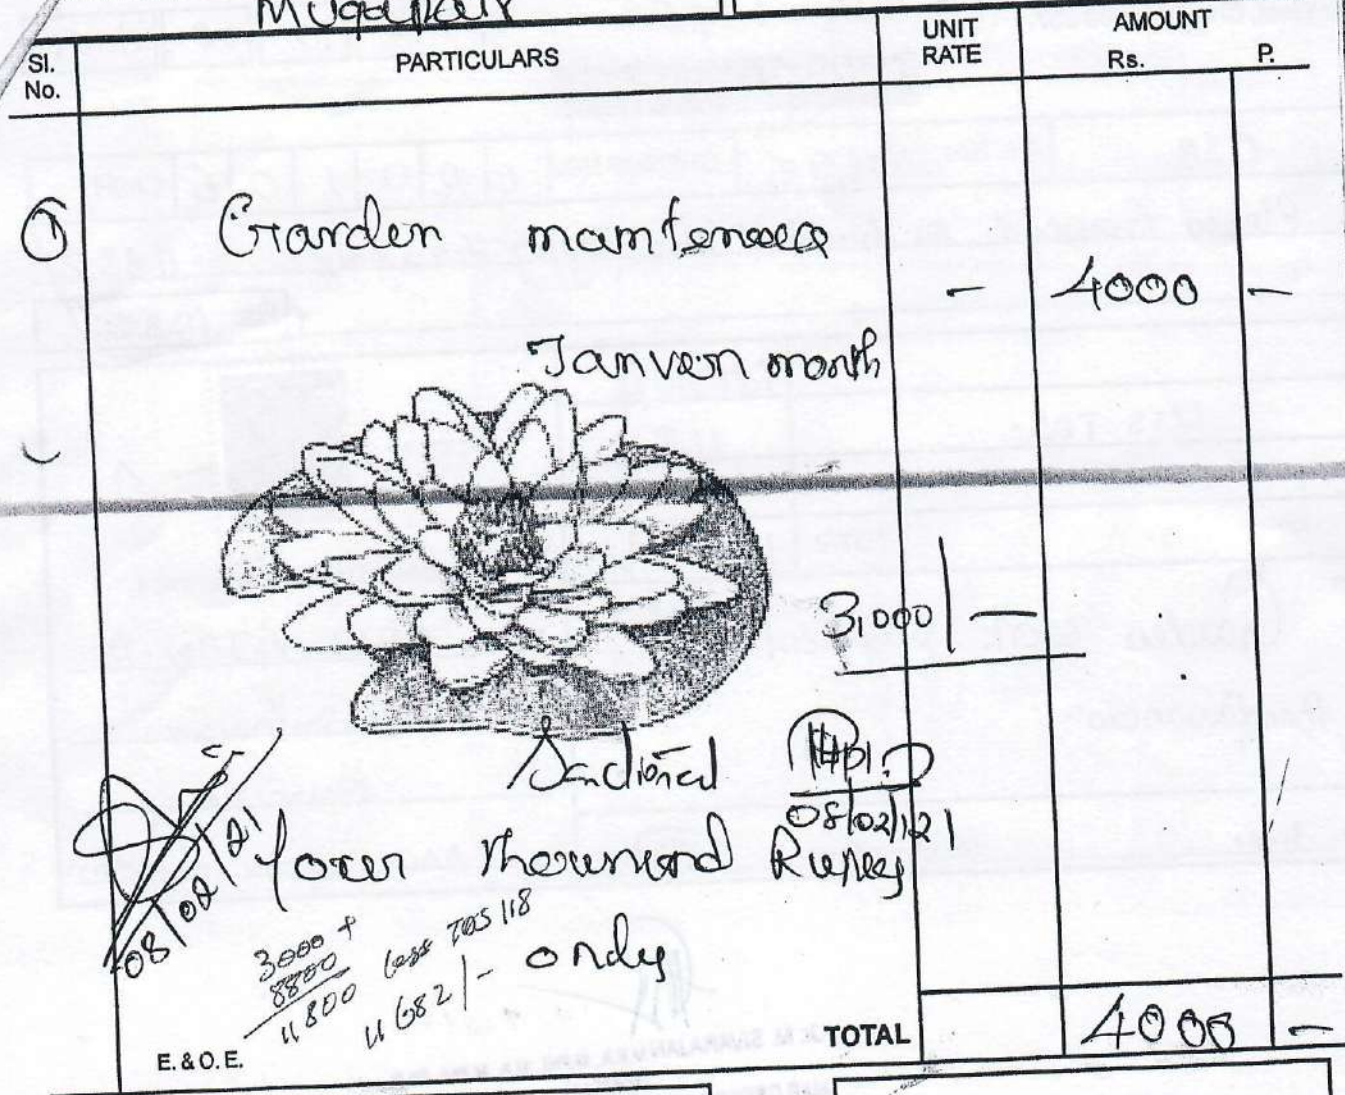 Mugappair
Sl. No. PARTICULARS UNIT RATE AMOUNT Rs. P.
① Garden mantenance
- 4000 -
Janvery month
3,000/-
Sanctioned
08/02/21
08/02/21
four thousand Rupees
only
3000 +
8800
11800 less TDS 118
11682/-
E. & O.E.
TOTAL 4000 -